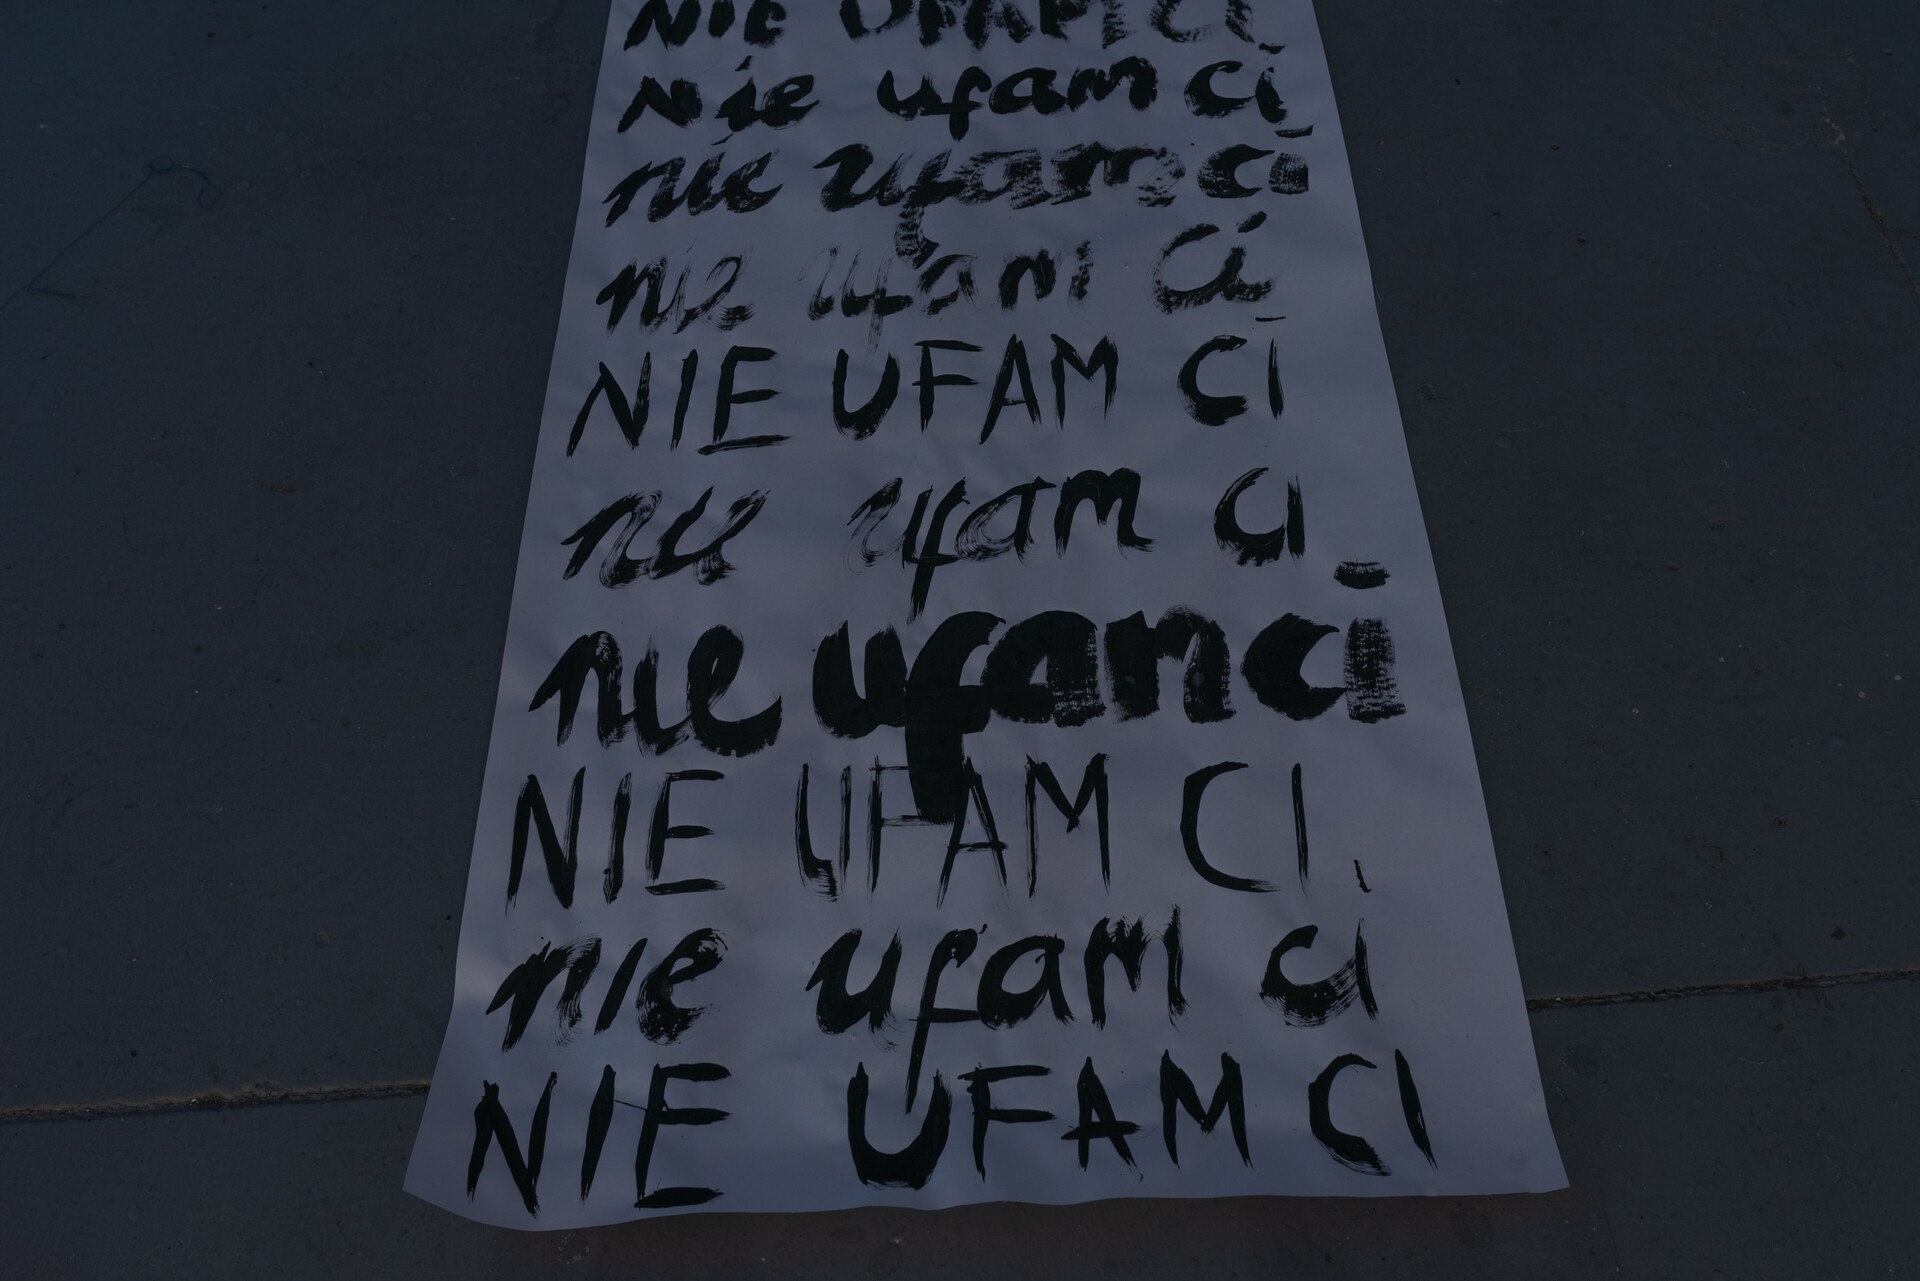 NIE UFAM CI
Nie ufam ci
nie ufam ci
nie ufam ci
NIE UFAM CI
nie ufam ci
nie ufam ci
NIE UFAM CI
nie ufam ci
NIE UFAM CI